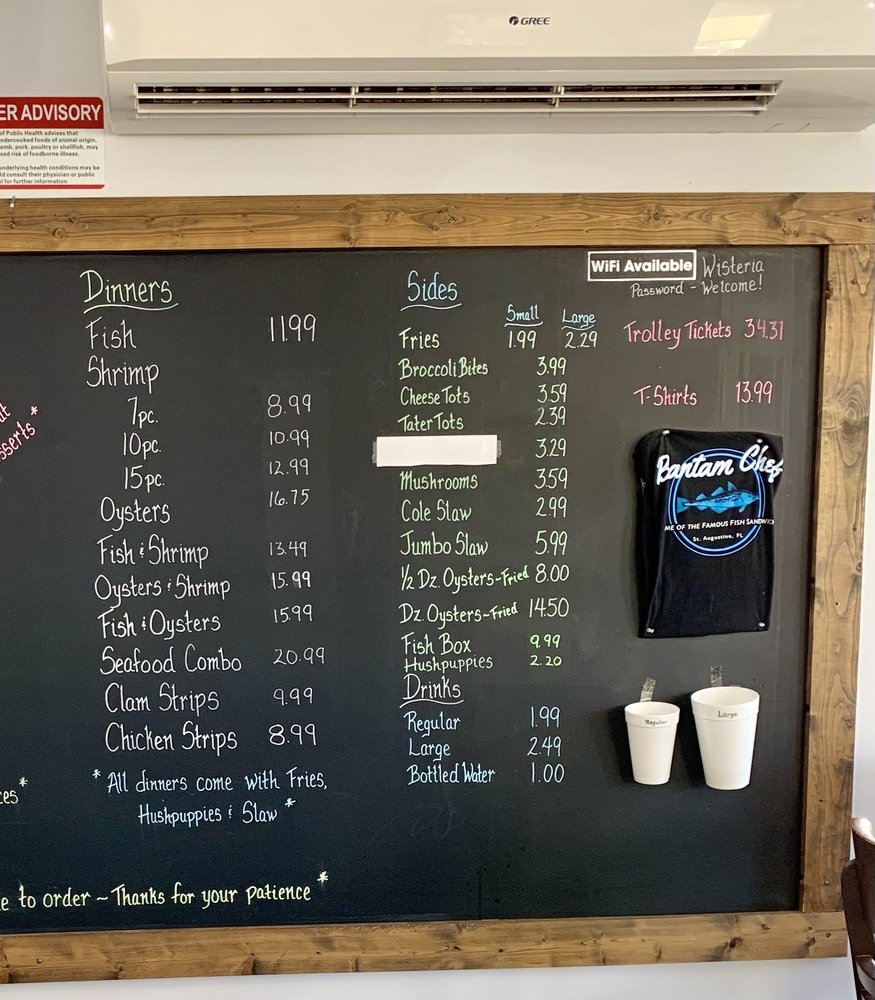 GREE
ER ADVISORY
of Public Health advises that
undercooked foods of animal origin,
amb, pork, poultry or shellfish, may
sed risk of foodborne illness.
underlying health conditions may be
ld consult their physician or public
al for further information
Dinners
Fish 11.99
Shrimp
7pc. 8.99
10pc. 10.99
15pc. 12.99
Oysters 16.75
Fish & Shrimp 13.49
Oysters & Shrimp 15.99
Fish & Oysters 15.99
Seafood Combo 20.99
Clam Strips 9.99
Chicken Strips 8.99
* All dinners come with Fries,
Hushpuppies & Slaw *
sserts *
ces *
e to order ~ Thanks for your patience *
Sides
Small Large
Fries 1.99 2.29
Broccoli Bites 3.99
Cheese Tots 3.59
Tater Tots 2.39
3.29
Mushrooms 3.59
Cole Slaw 2.99
Jumbo Slaw 5.99
1/2 Dz. Oysters-Fried 8.00
Dz. Oysters-Fried 14.50
Fish Box 9.99
Hushpuppies 2.20
Drinks
Regular 1.99
Large 2.49
Bottled Water 1.00
WiFi Available Wisteria
Password - Welcome!
Trolley Tickets 34.31
T-Shirts 13.99
Bantam Chef
ME OF THE FAMOUS FISH SANDWICH
St. Augustine, FL
Regular
Large